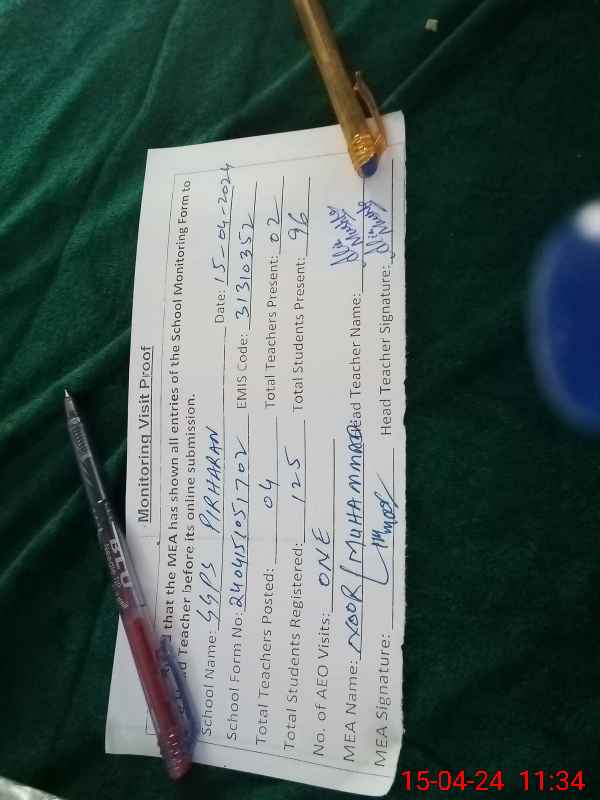 Monitoring Visit Proof
that the MEA has shown all entries of the School Monitoring Form to
Teacher before its online submission.
School Name: GGPS PIRHARAN Date: 15-04-2024
School Form No: 2404151051702 EMIS Code: 31310352
Total Teachers Posted: 04 Total Teachers Present: 02
Total Students Registered: 125 Total Students Present: 96
No. of AEO Visits: ONE
MEA Name: NOOR MUHAMMAD Head Teacher Name:
MEA Signature: Head Teacher Signature:
15-04-24 11:34